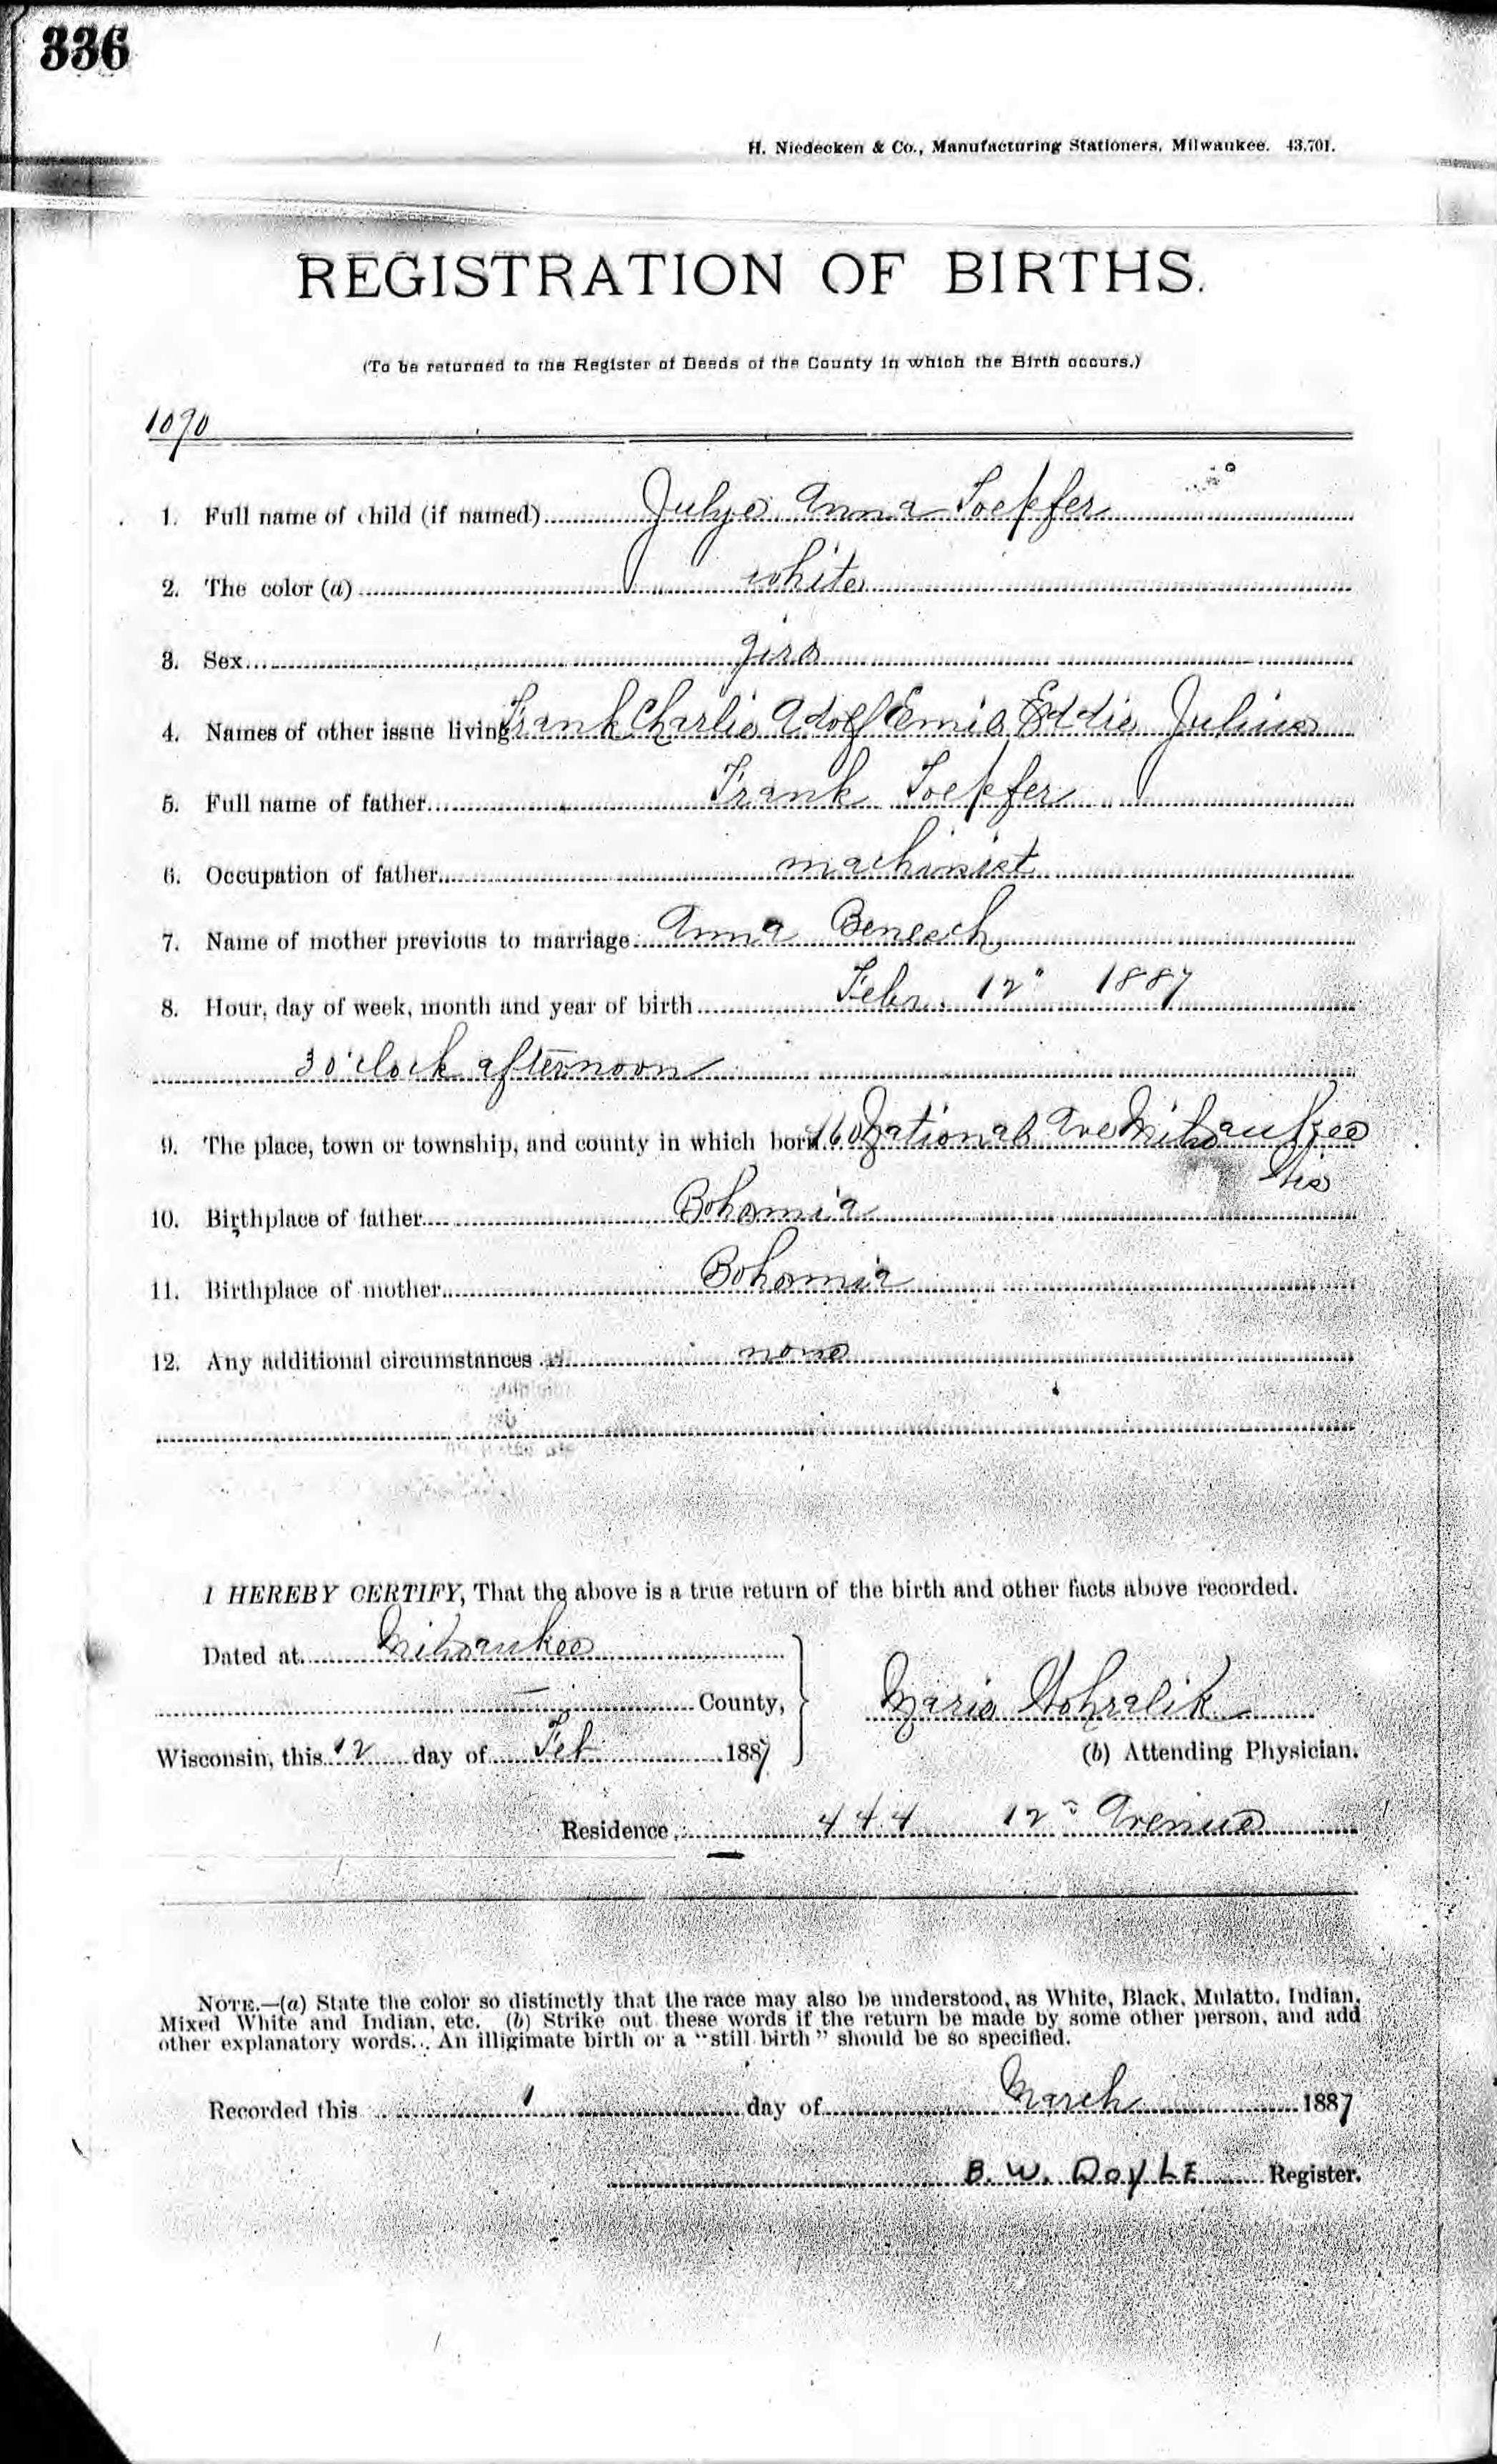 336
H. Niedecken & Co., Manufacturing Stationers, Milwaukee. 43,701.
REGISTRATION OF BIRTHS.
(To be returned to the Register of Deeds of the County in which the Birth occurs.)
1090
1. Full name of child (if named) Anna Toepfer
2. The color (a) white
3. Sex girl
4. Names of other issue living Frank Charlie Adolf Emil Eddie Julius
5. Full name of father Frank Toepfer
6. Occupation of father machinist
7. Name of mother previous to marriage Anna Benesch
8. Hour, day of week, month and year of birth Febr. 12" 1887
3 o'clock afternoon
9. The place, town or township, and county in which born National Ave Milwaukee
10. Birthplace of father Bohamia
11. Birthplace of mother Bohamia
12. Any additional circumstances none
I HEREBY CERTIFY, That the above is a true return of the birth and other facts above recorded.
Dated at Milwaukee
County,
Wisconsin, this 12 day of Feb 1887
Marie
(b) Attending Physician.
Residence 444 12 Avenue
NOTE.—(a) State the color so distinctly that the race may also be understood, as White, Black, Mulatto, Indian,
Mixed White and Indian, etc. (b) Strike out these words if the return be made by some other person, and add
other explanatory words. An illigimate birth or a "still birth" should be so specified.
Recorded this 1 day of March 1887
B. W. DoyLE Register.